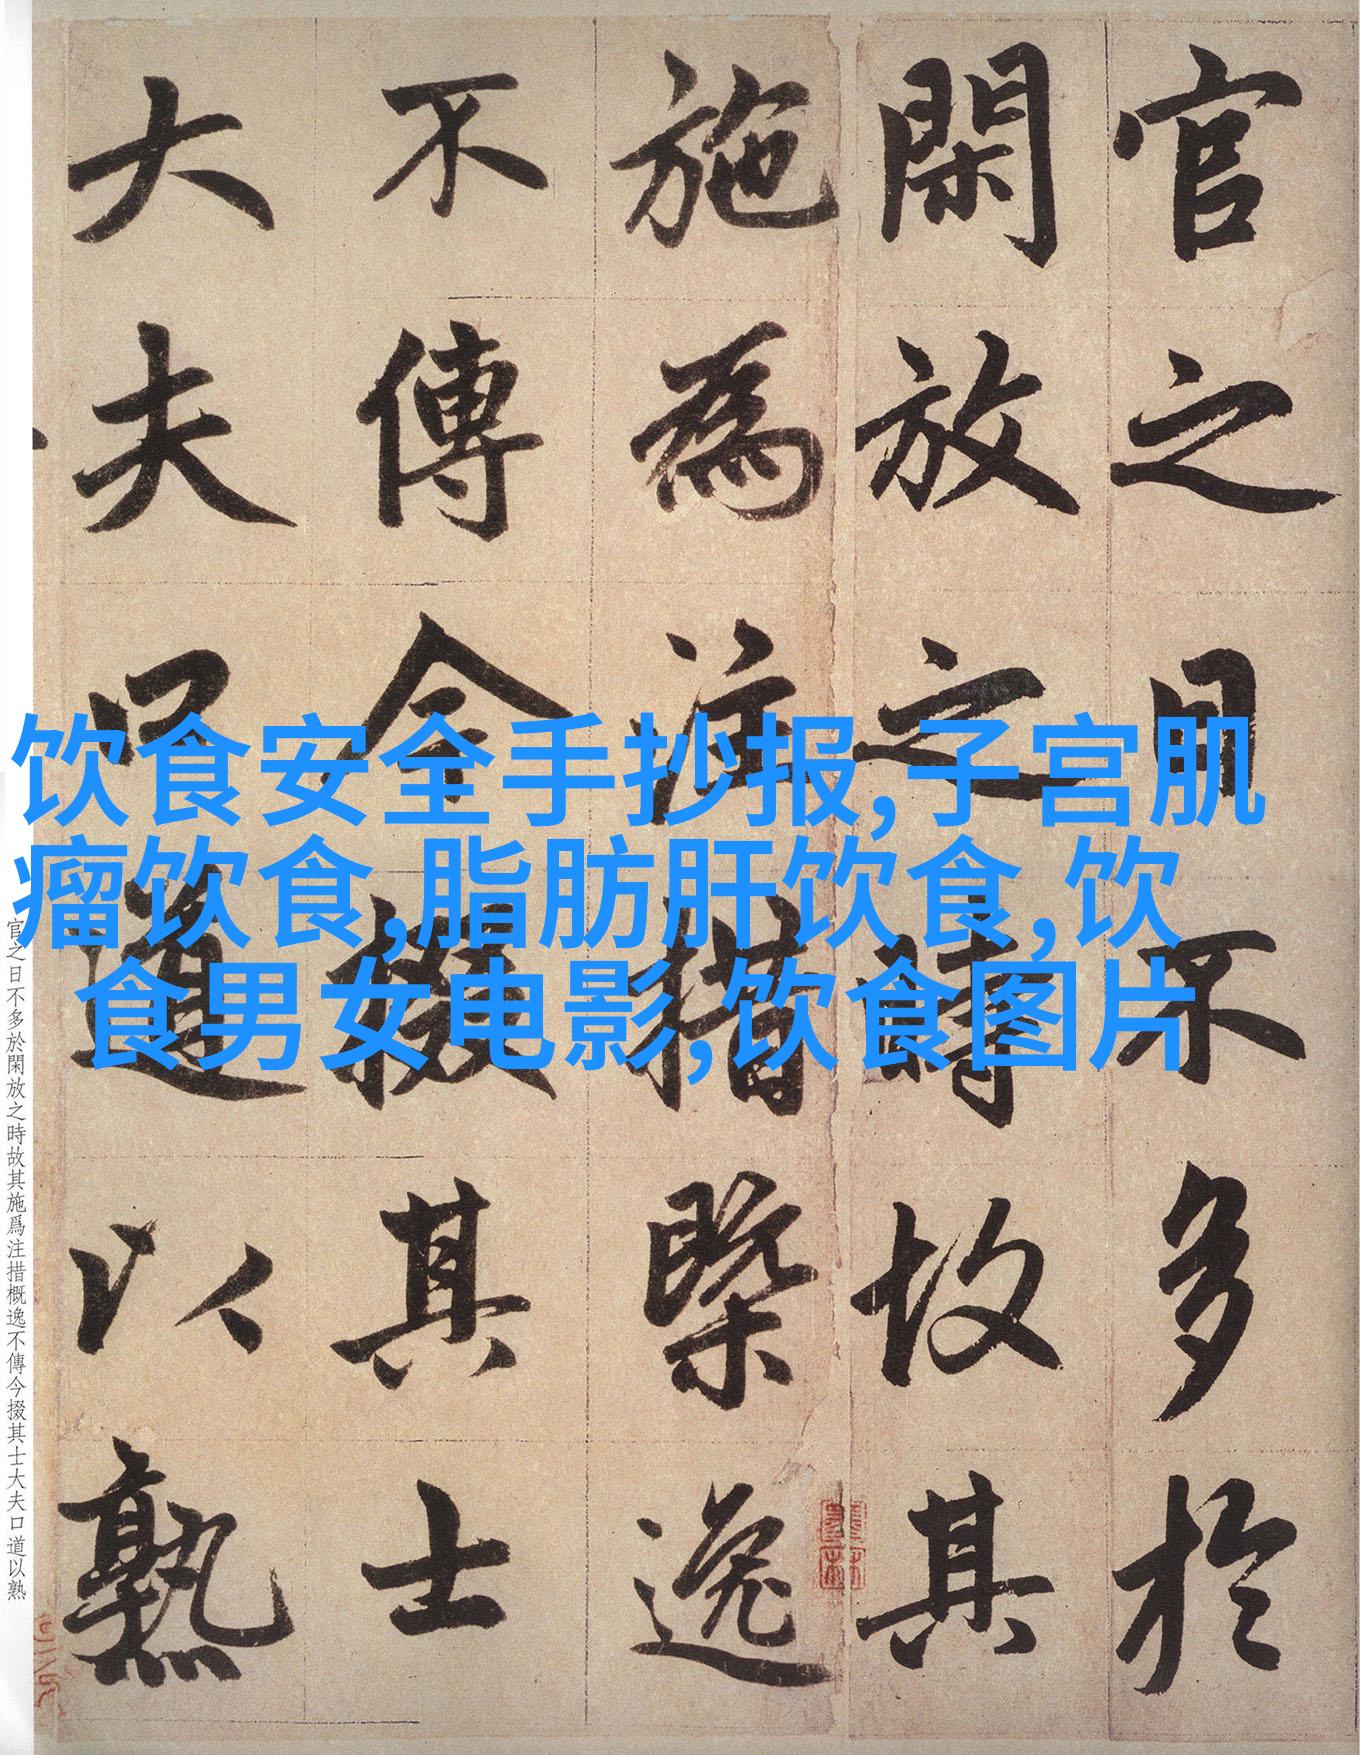 官之日不多於
閑放之時故其
施為注措槩逸
不傳今掇其士
大夫口道以熟
饮食安全手抄报,子宫肌
瘤饮食,脂肪肝饮食,饮
食男女电影,饮食图片
官之日不多於閑放之時故其施爲注措概逸不傳今掇其士大夫口道以熟